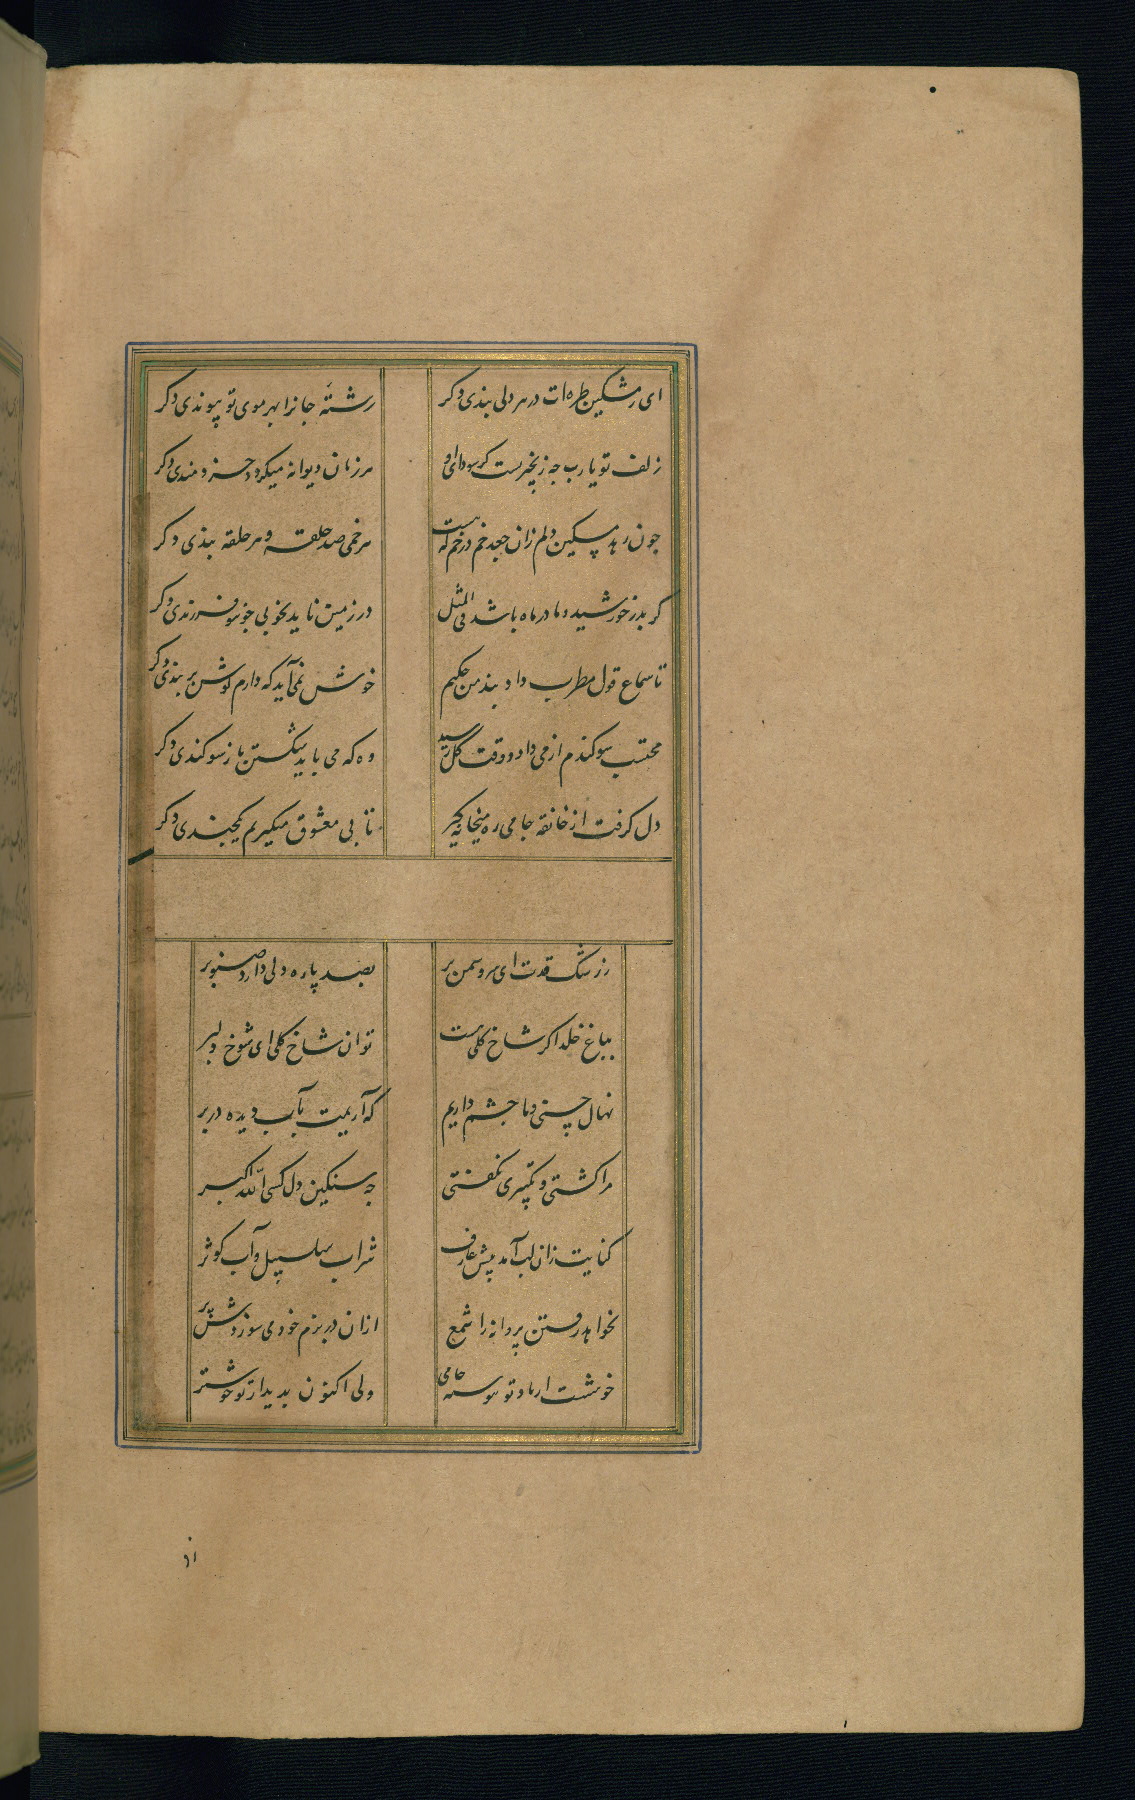 ای ز مشکین طره‌ات در هر دلی بندی دکر رشتهٔ جانرا بهر موی تو پیوندی دکر
زلف تو یا رب چه زنجیرست کز سودای او هر زمان دیوانه میکردد خردمندی دکر
چون رهد مسکین دلم زان جعد خم در خم که هست هر خمی صد حلقه و هر حلقه بندی دکر
کر بدر خورشید و مادر ماه باشد فی المثل در زمین ناید بخوبی چو تو فرزندی دکر
تا سماع قول مطرب داد بند من حکیم خوش نمی‌آید که دارم کوش بر بندی دکر
محتسب سوکندم از می داد و وقت کل رسید وه که می باید شکستن باز سوکندی دکر
دل کرفت از خانقه جامی ره میخانه کیر تا بی معشوق میکیریم یکچندی دکر
ز رشک قدت ای سرو سمن بر بصد پاره دلی دارد صنوبر
بباغ خلد اکر شاخ کلی هست توان شاخ کلی ای شوخ دلبر
نهال حسنی و ما چشم داریم که آریمت بآب دیده در بر
مرا کشتی و تکبیری نکفتی چه سنکین دل کسی الله اکبر
کنایت زان لب آمد پیش عارف شراب سلسبیل و آب کوثر
نخواهد رفتن پروانه را شمع ازان در بزم خود می سوزدش پر
خوشست از یاد تو پیوسته جامی ولی اکنون بدیدار تو خوشتر